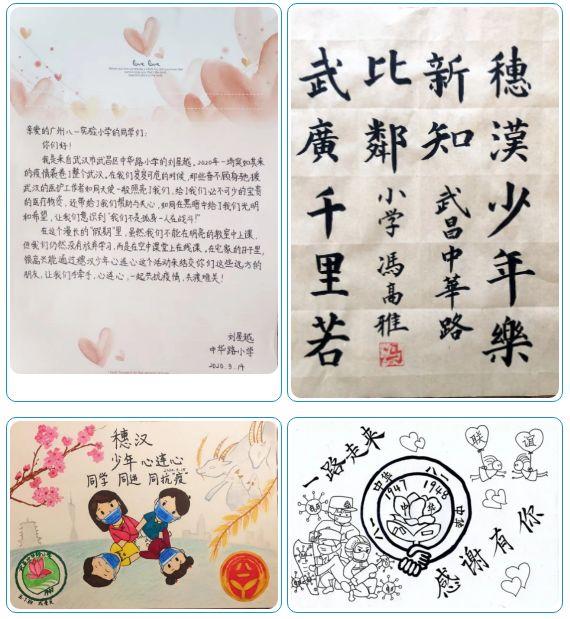 love love
亲爱的广州八一实验小学的同学们:
你们好!
我是来自武汉市武昌区中华路小学的刘星越。2020年一场突如其来
的疫情袭卷了整个武汉。在我们岌岌可危的时候,那些奋不顾身驰援
武汉的医护工作者如同天使一般照亮了我们,给了我们必不可少的宝贵
的医疗物资,还带给了我们帮助与关心,如同在黑暗中给了我们光明
和希望,让我们意识到“我们不是孤身一人在战斗!”
在这个漫长的“假期”里,虽然我们不能在明亮的教室中上课,
但我们仍然没有放弃学习,而是在空中课堂上在线课。在宅家的日子里,
很高兴能通过穗汉少年心连心这个活动来结交你们这些远方的
朋友,让我们手牵手,心连心,一起共抗疫情,共渡难关!
刘星越
中华路小学
2020.3.14
穗漢少年樂
新知 武昌中華路
比鄰 小学馮高雅
武廣千里若
穗汉
少年 心连心
同学 同进 同抗疫
八一
一路走来
中华 八一
1947 1948
八一 中华
联谊
感谢有你